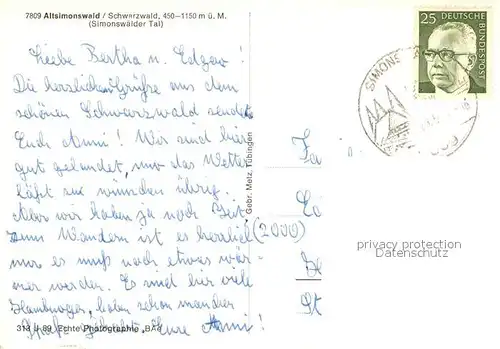 7809 Altsimonswald / Schwarzwald, 450-1150 m ü. M.
(Simonswälder Tal)
Liebe Bertha u. Edgar!
Die herzlichen Grüße aus dem
schönen Schwarzwald sendet
Euch Anni! Wir sind hier
gut gelandet, nur das Wetter
läßt zu wünschen übrig.
Aber wir haben ja noch Zeit.
Zum Wandern ist es herrlich
nur es muß noch etwas wär-
mer werden. Es sind hier viel
Hamburger, haben schon manchen
Eure Anni!
318 II 89 Echte Photographie
Gebr. Metz, Tübingen
25 DEUTSCHE BUNDESPOST
SIMONS
Fa
(2000)
St
privacy protection
Datenschutz